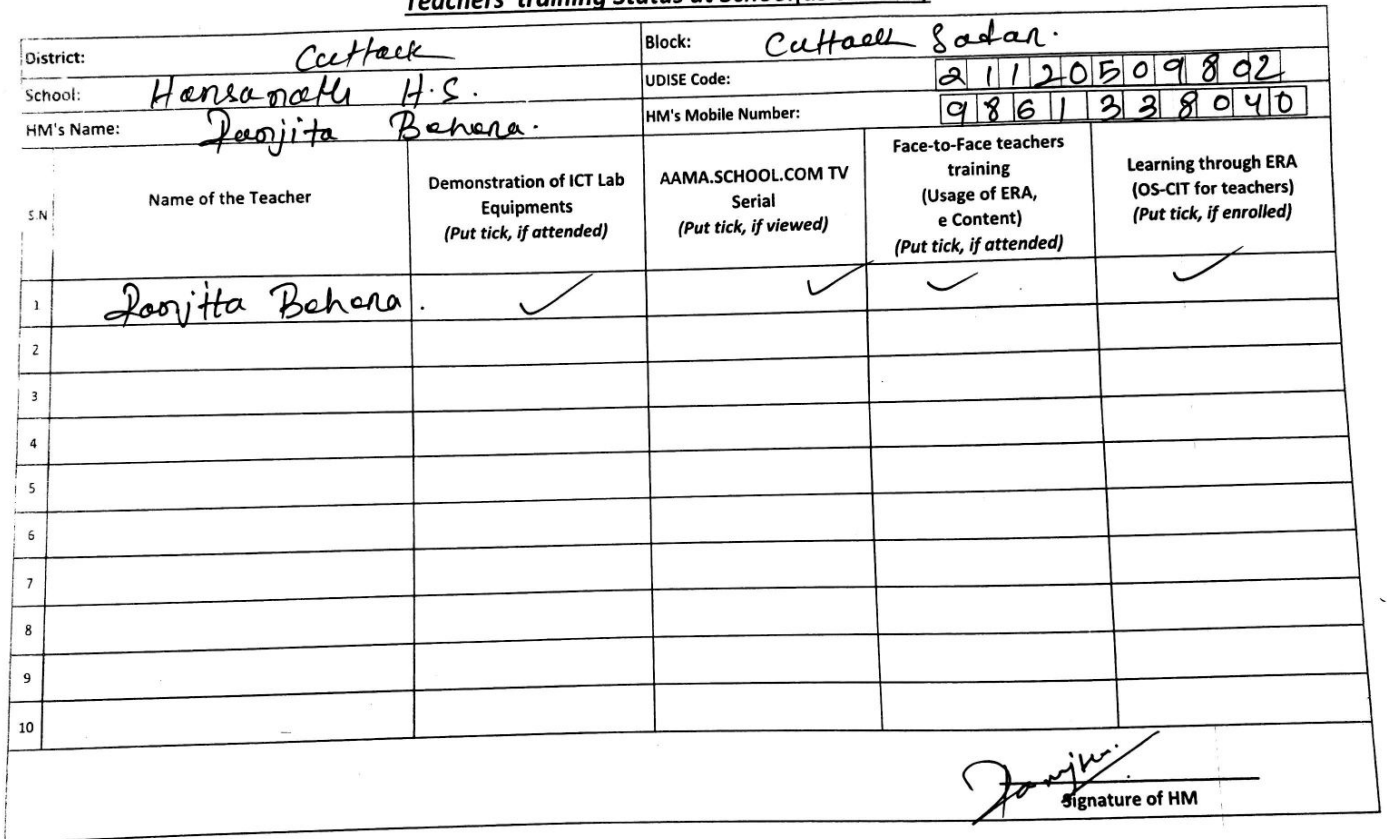 Teachers' training Status at School
District: Cuttack Block: Cuttack Sadar.
School: Hansanath H.S. UDISE Code: 21120509802
HM's Name: Ranjita Behera. HM's Mobile Number: 9861338040
S.N
Name of the Teacher
Demonstration of ICT Lab
Equipments
(Put tick, if attended)
AAMA.SCHOOL.COM TV
Serial
(Put tick, if viewed)
Face-to-Face teachers
training
(Usage of ERA,
e Content)
(Put tick, if attended)
Learning through ERA
(OS-CIT for teachers)
(Put tick, if enrolled)
1 Ranjitta Behera. ✓ ✓ ✓ ✓
2
3
4
5
6
7
8
9
10
Signature of HM